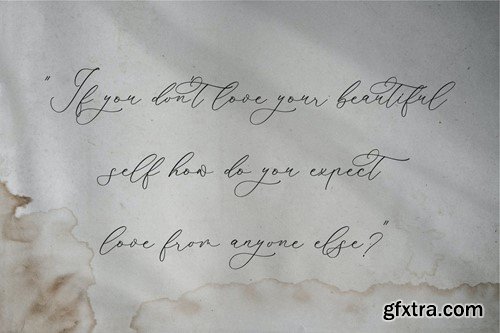 "If you don't love your beautiful
self how do you expect
love from anyone else?"
gfxtra.com